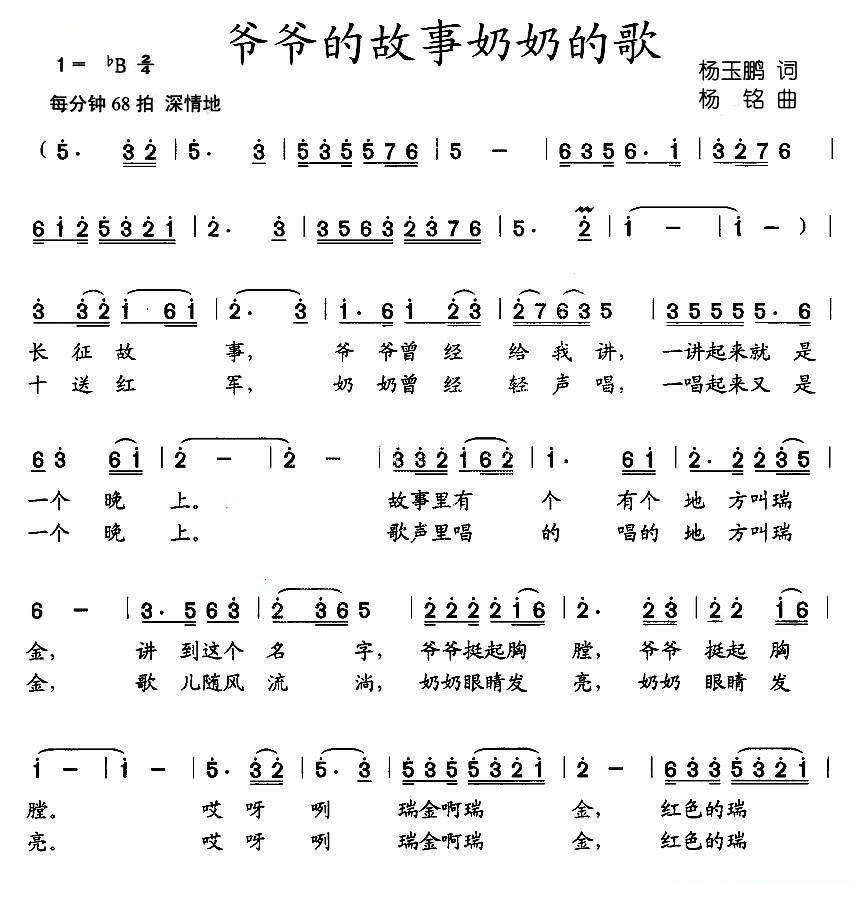 爷爷的故事奶奶的歌
1= ♭B 2/4
杨玉鹏 词
每分钟 68 拍 深情地
杨 铭 曲
( 5. 3 2 | 5. 3 | 5 3 5 5 7 6 | 5 – | 6 3 5 6. 1 | 3 2 7 6 |
6 1 2 5 3 2 1 | 2. 3 | 3 5 6 3 2 3 7 6 | 5. 2 | 1 – | 1 – ) |
3 3 2 1 6 1 | 2. 3 | 1. 6 1 2 3 | 2 7 6 3 5 | 3 5 5 5 5. 6 |
长 征 故 事, 爷 爷曾 经 给 我 讲, 一讲起来就 是
十 送 红 军, 奶 奶曾 经 轻 声 唱, 一唱起来又 是
6 3 6 1 | 2 – | 2 – | 3 3 2 1 6 2 | 1. 6 1 | 2. 2 2 3 5 |
一个 晚 上。 故事里有 个 有个 地 方叫瑞
一个 晚 上。 歌声里唱 的 唱的 地 方叫瑞
6 – | 3. 5 6 3 | 2 3 6 5 | 2 2 2 2 1 6 | 2. 2 3 | 2 2 1 6 |
金, 讲 到这个 名 字, 爷爷挺起胸 膛, 爷爷 挺起 胸
金, 歌 儿随风 流 淌, 奶奶眼睛发 亮, 奶奶 眼睛 发
1 – | 1 – | 5. 3 2 | 5. 3 | 5 3 5 5 3 2 1 | 2 – | 6 3 3 5 3 2 1 |
膛。 哎 呀 咧 瑞金啊瑞 金, 红色的瑞
亮。 哎 呀 咧 瑞金啊瑞 金, 红色的瑞